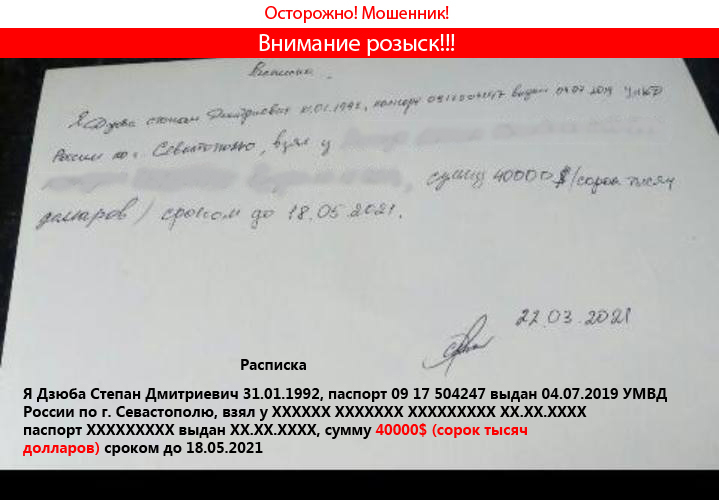 Осторожно! Мошенник!
Внимание розыск!!!
Расписка
Я Дзюба Степан Дмитриевич 31.01.1992, паспорт 0917504247 выдан 04.07.2019 УМВД
России по г. Севастополю, взял у
сумму 40000$ /сорок тысяч
долларов) сроком до 18.05.2021.
22.03.2021
Расписка
Я Дзюба Степан Дмитриевич 31.01.1992, паспорт 09 17 504247 выдан 04.07.2019 УМВД
России по г. Севастополю, взял у XXXXXX XXXXXXX XXXXXXXXX XX.XX.XXXX
паспорт XXXXXXXXX выдан XX.XX.XXXX, сумму 40000$ (сорок тысяч
долларов) сроком до 18.05.2021